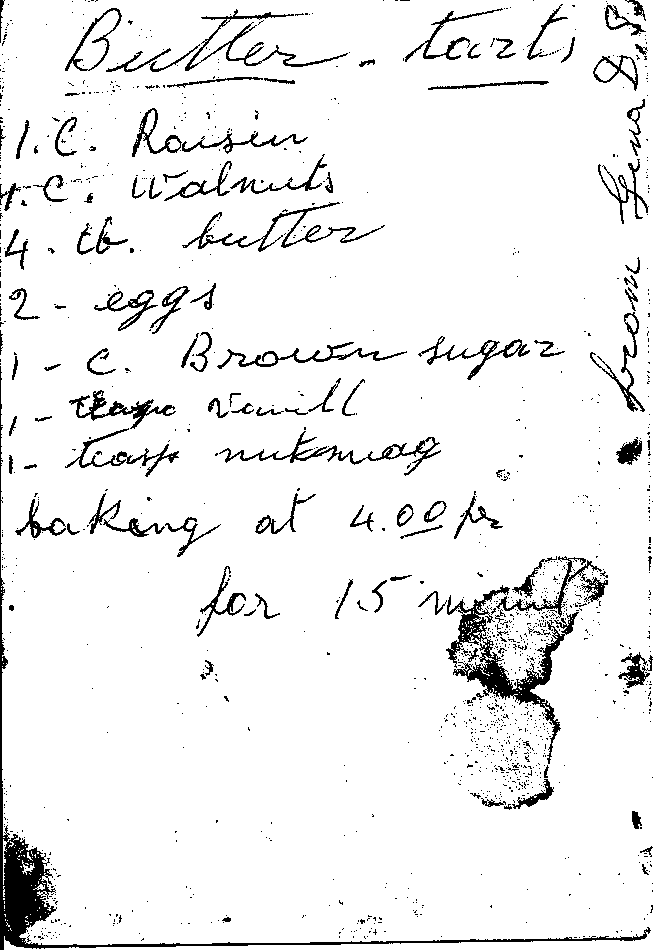 Butter - tarts
1. C. Raisin
1. C. Walnuts
4 - tb. butter
2 - eggs
1 - c. Brown sugar
1 - teasp vanill
1 - teasp nutmeag
baking at 4.00 fr
for 15 minut
from Gina D.